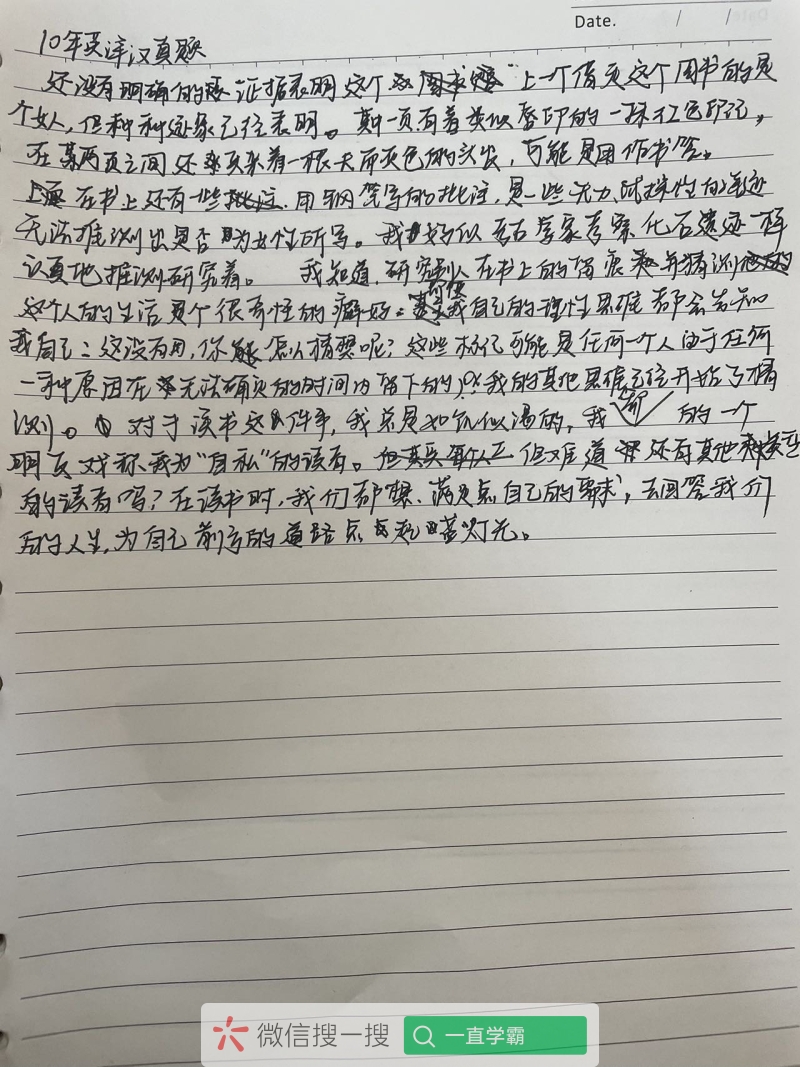 Date. / /
10年英译汉真题
还没有明确的证据表明这个 上一个借走这个图书的是
个女人,但种种迹象已经表明。其中一页有着类似唇印的一抹红色印记,
在某两页之间还夹着一根长而灰色的头发,可能是用作书签。
在书上还有一些批注.用钢笔写的批注,是一些无力、试探性的笔迹
无法推测出是否为女性所写。我好似考古学家考察化石遗迹一样
认真地推测研究着。 我知道,研究别人在书上的留痕并猜测
这个人的生活是个很奇怪的癖好。即使我自己的理性思维都会告知
我自己:这没有用,你能怎么猜想呢?这些标记可能是任何一个人由于任何
一种原因在无法确定的时间内留下的,但我的其他思维已经开始了猜
测。对于读书这件事,我总是如饥似渴的,我 的一个
朋友戏称我为"自私"的读者。但难道还有其他类型
的读者吗?在读书时,我们都想、满足点自己的需求,去回答我们
的人生,为自己前方的道路点起一盏灯光。
微信搜一搜
一直学霸